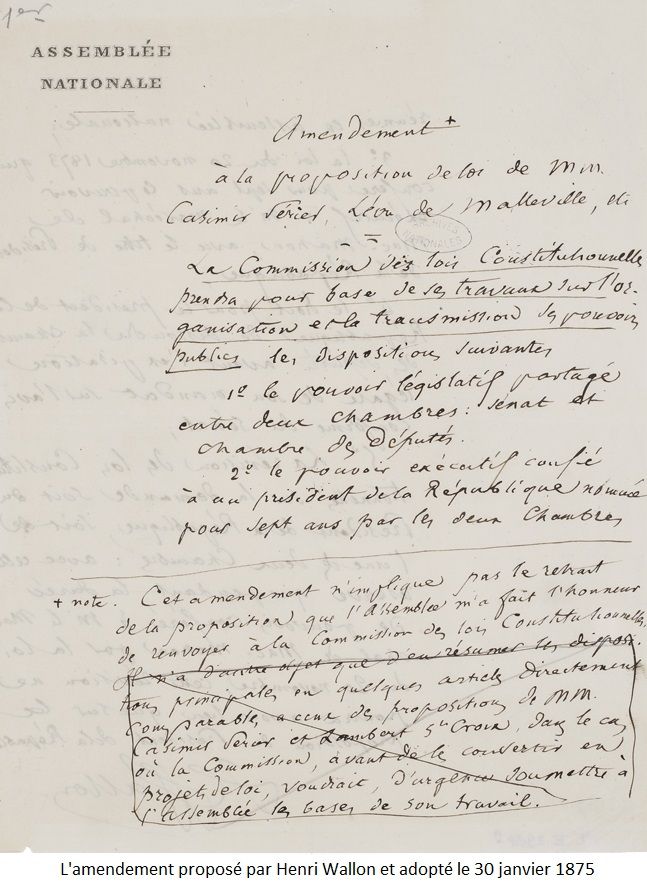 1er
ASSEMBLÉE
NATIONALE
Amendement +
à la proposition de loi de MM.
Casimir Périer, Léon de Malleville, etc
ARCHIVES NATIONALES
La Commission des lois Constitutionnelles
prendra pour base de ses travaux sur l'or-
ganisation et la transmission des pouvoirs
publics les dispositions suivantes
1º le pouvoir législatif partagé
entre deux chambres : Sénat et
Chambre des Députés.
2º le pouvoir exécutif confié
à un président de la République nommé
pour sept ans par les deux Chambres
+ note. Cet amendement n'implique pas le retrait
de la proposition que l'Assemblée m'a fait l'honneur
de renvoyer à la Commission des lois Constitutionnelles.
Il n'a d'autre objet que d'en résumer les disposi-
tions principales en quelques articles directement
comparables à ceux des propositions de MM.
Casimir Périer et Lambert Ste Croix, dans le cas
où la Commission, avant de le convertir en
projet de loi, voudrait, d'urgence soumettre à
l'assemblée les bases de son travail.
L'amendement proposé par Henri Wallon et adopté le 30 janvier 1875